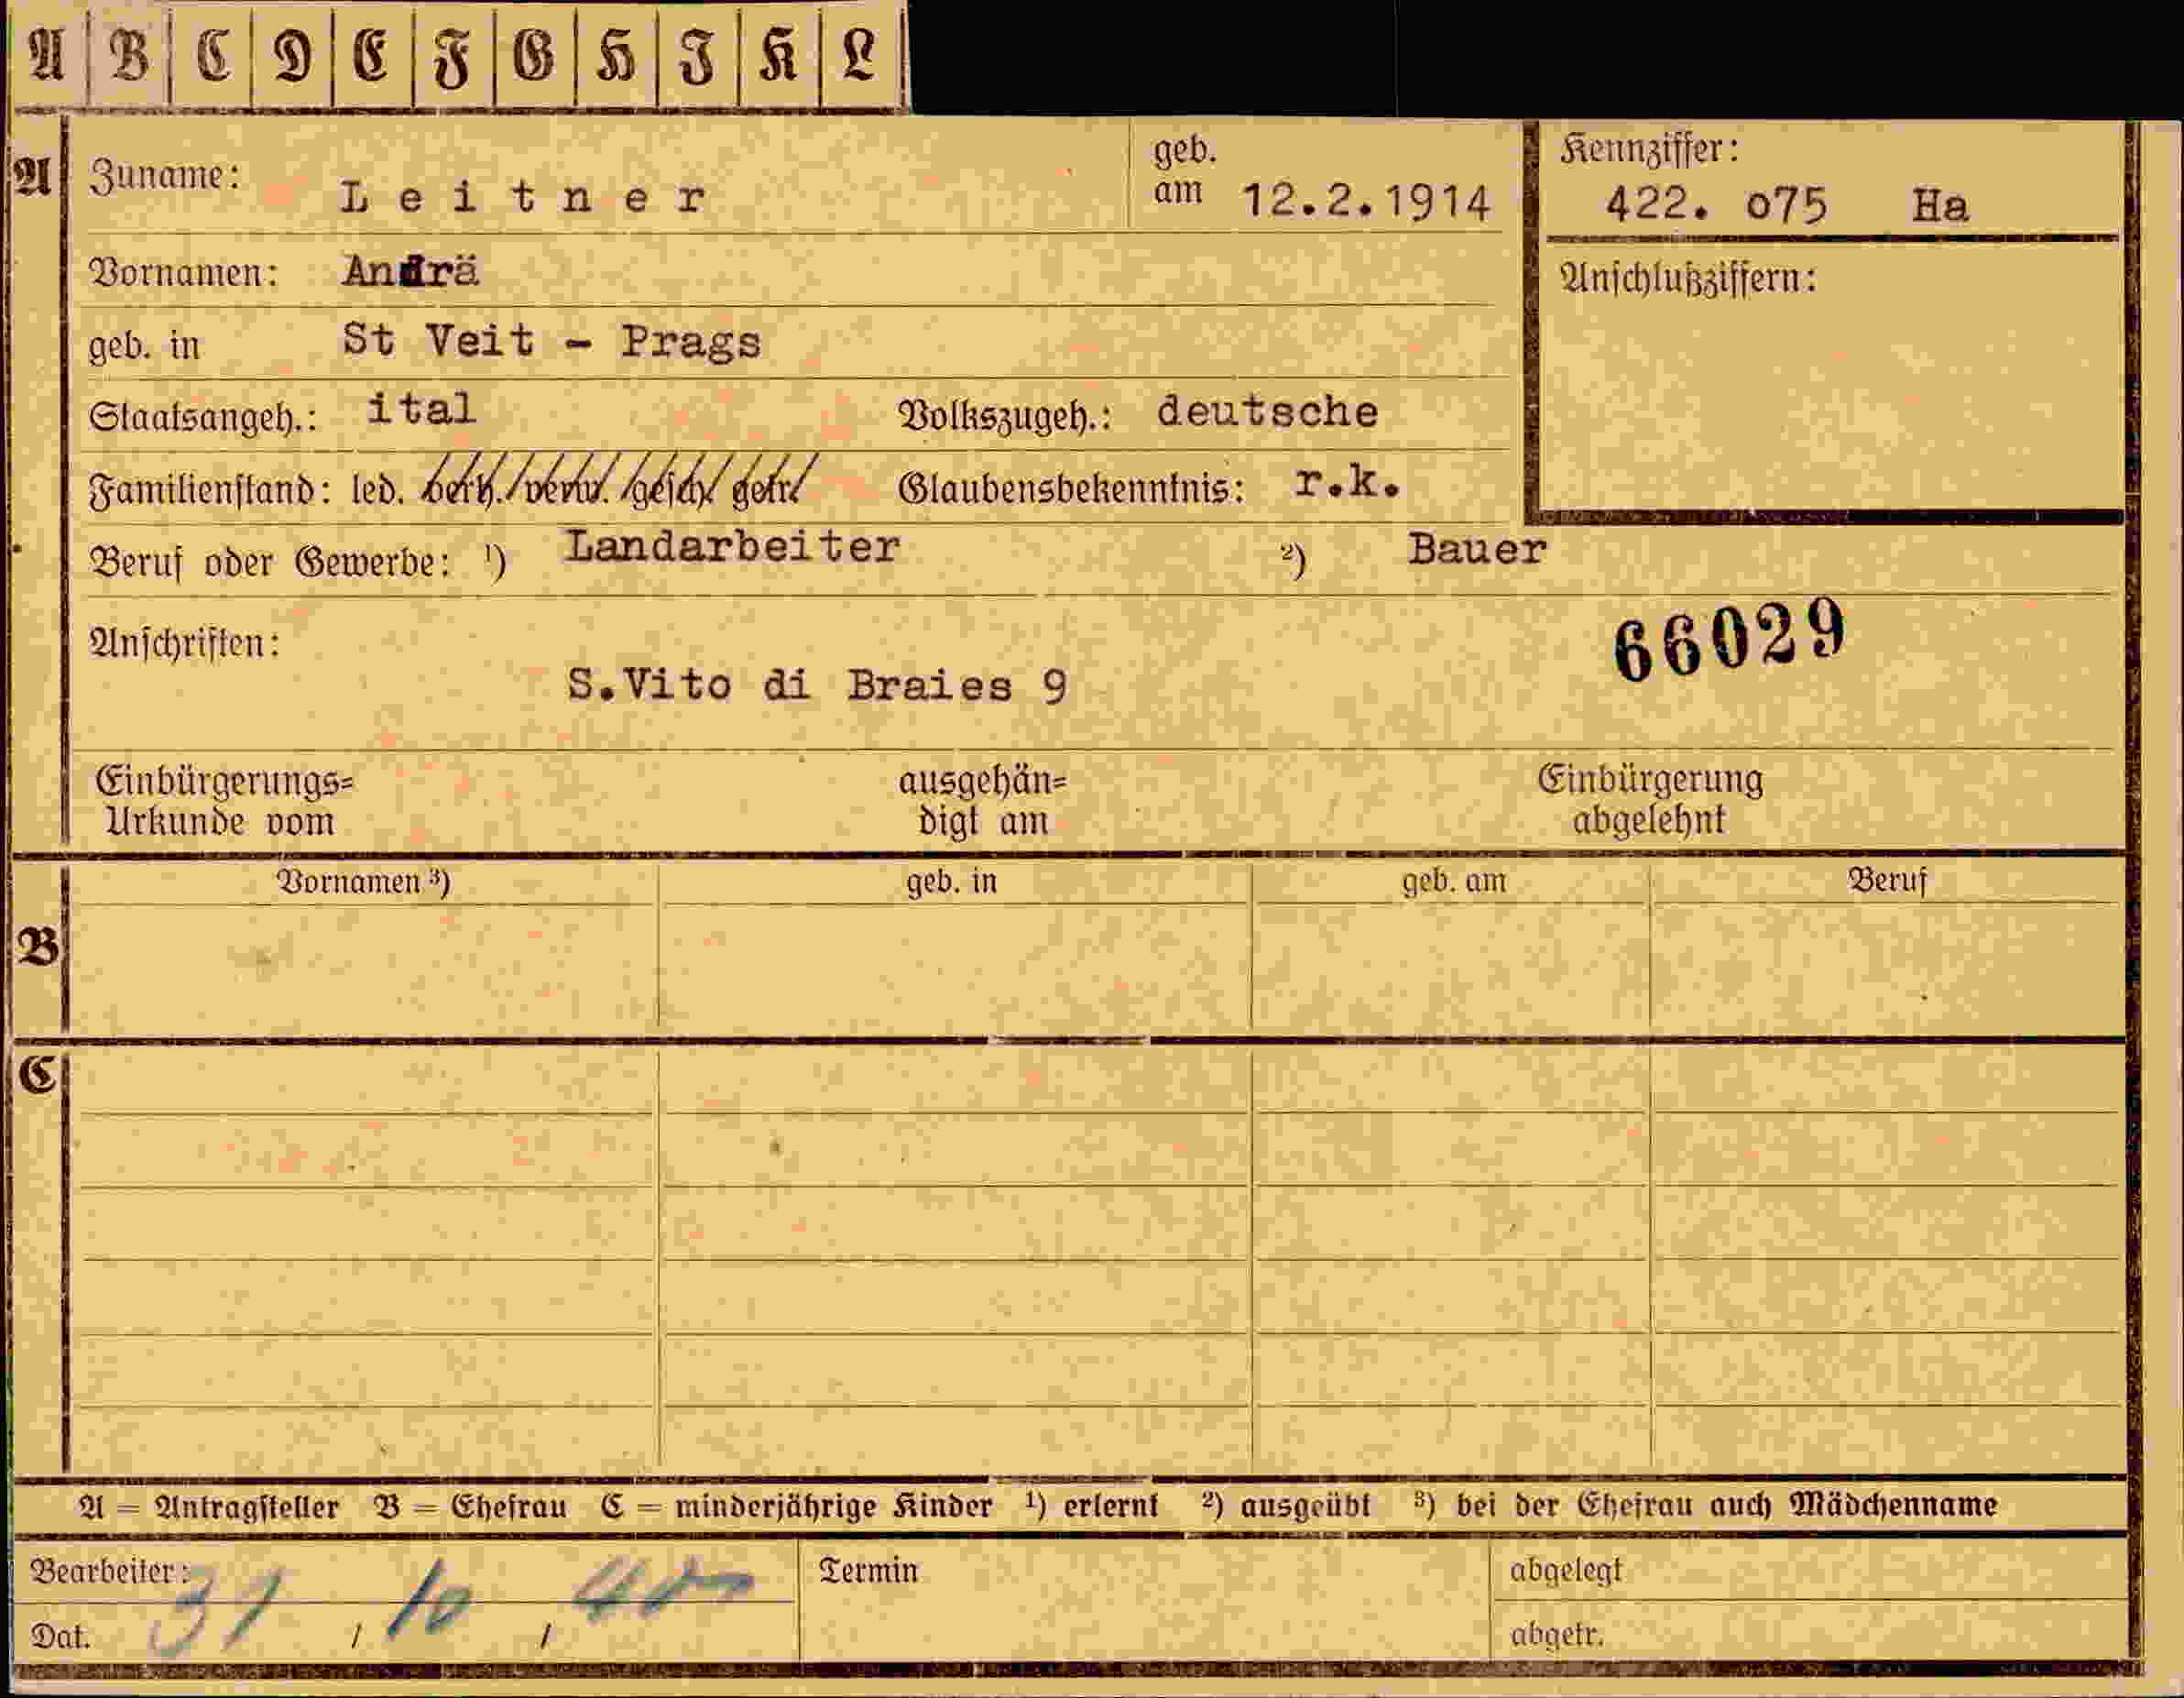 A B C D E F G H I K L
A Zuname: Leitner geb. am 12.2.1914 Kennziffer: 422. o75 Ha
Vornamen: Andrä Anschlußziffern:
geb. in St Veit - Prags
Staatsangeh.: ital Volkszugeh.: deutsche
Familienstand: led. verh. verw. gesch. getr. Glaubensbekenntnis: r.k.
Beruf oder Gewerbe: 1) Landarbeiter 2) Bauer
Anschriften: 66029
S.Vito di Braies 9
Einbürgerungs= ausgehän= Einbürgerung
Urkunde vom digt am abgelehnt
Vornamen 3) geb. in geb. am Beruf
B
C
A = Antragsteller B = Ehefrau C = minderjährige Kinder 1) erlernt 2) ausgeübt 3) bei der Ehefrau auch Mädchenname
Bearbeiter: Termin abgelegt
Dat. 31 / 10 / 40 abgetr.